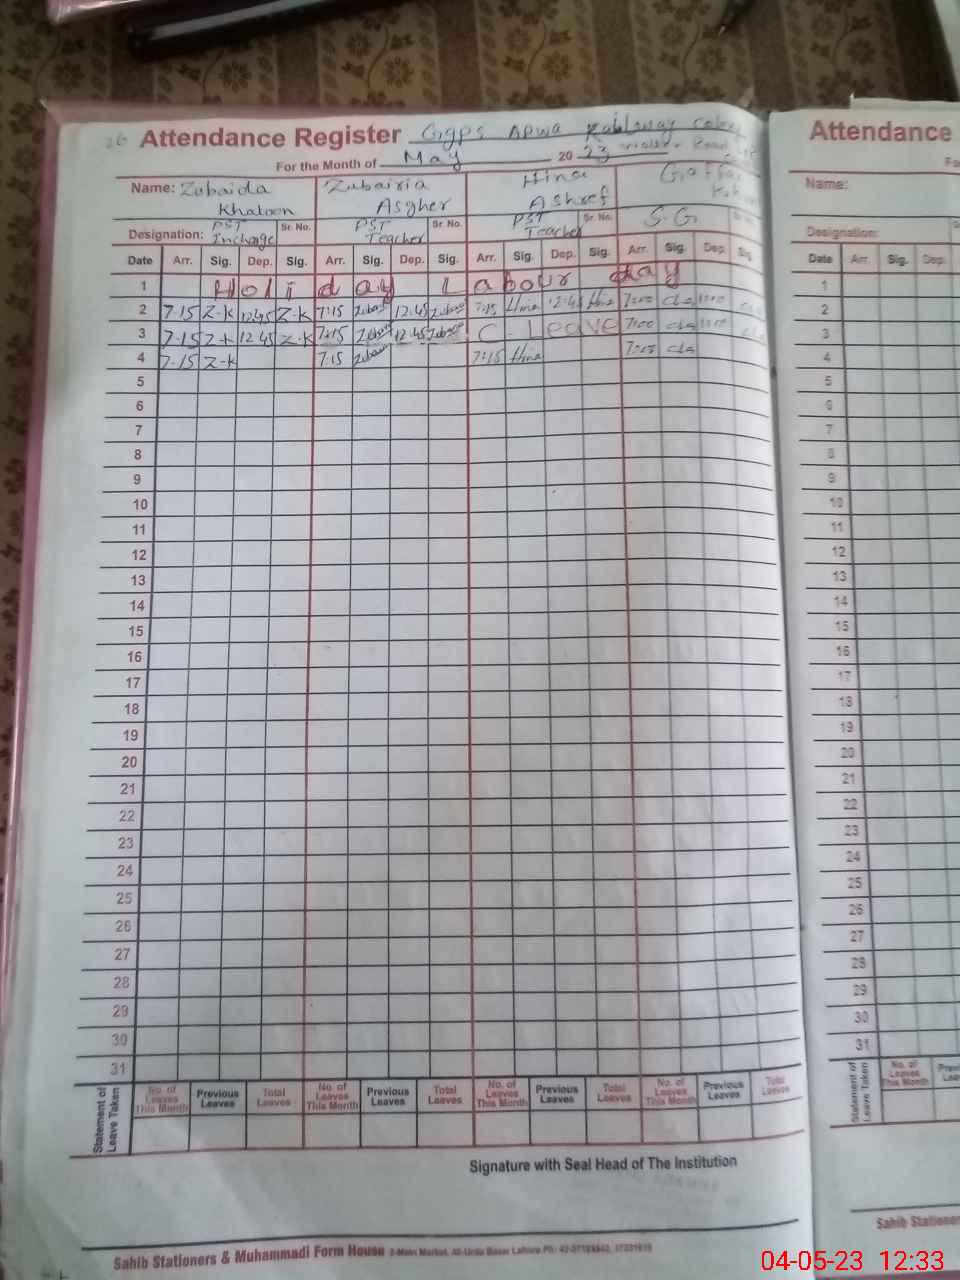 26 Attendance Register GGPS APWA Railway Colony
For the Month of May 2023
Name: Zubaida Khatoon Zubairia Asgher Hina Ashref Gaffar
Designation: PST Incharge Sr. No. PST Teacher Sr. No. PST Teacher Sr. No. S.G.
Date Arr. Sig. Dep. Sig. Arr. Sig. Dep. Sig. Arr. Sig. Dep. Sig. Arr. Sig. Dep. Sig.
1 Holiday Labour day
2 7-15 Z-K 12 45 Z-K 7:15 12:45 7:15 Hina 12:45 Hina 7:00
3 7-15 Z-K 12 45 Z-K 7:15 12:45 C-Leave 7:00
4 7-15 Z-K 7:15 7:15 Hina
5
6
7
8
9
10
11
12
13
14
15
16
17
18
19
20
21
22
23
24
25
26
27
28
29
30
31
Statement of Leave Taken No. of Leaves This Month Previous Leaves Total Leaves No. of Leaves This Month Previous Leaves Total Leaves No. of Leaves This Month Previous Leaves Total Leaves No. of Leaves This Month Previous Leaves Total Leaves
Signature with Seal Head of The Institution
Sahib Stationers & Muhammadi Form House 2-Main Market, Al-Urdu Bazar Lahore Ph:
Attendance
Name:
Designation:
Date Arr. Sig. Dep.
1
2
3
4
5
6
7
8
9
10
11
12
13
14
15
16
17
18
19
20
21
22
23
24
25
26
27
28
29
30
31
Statement of Leave Taken No. of Leaves This Month
Sahib Stationers
04-05-23 12:33